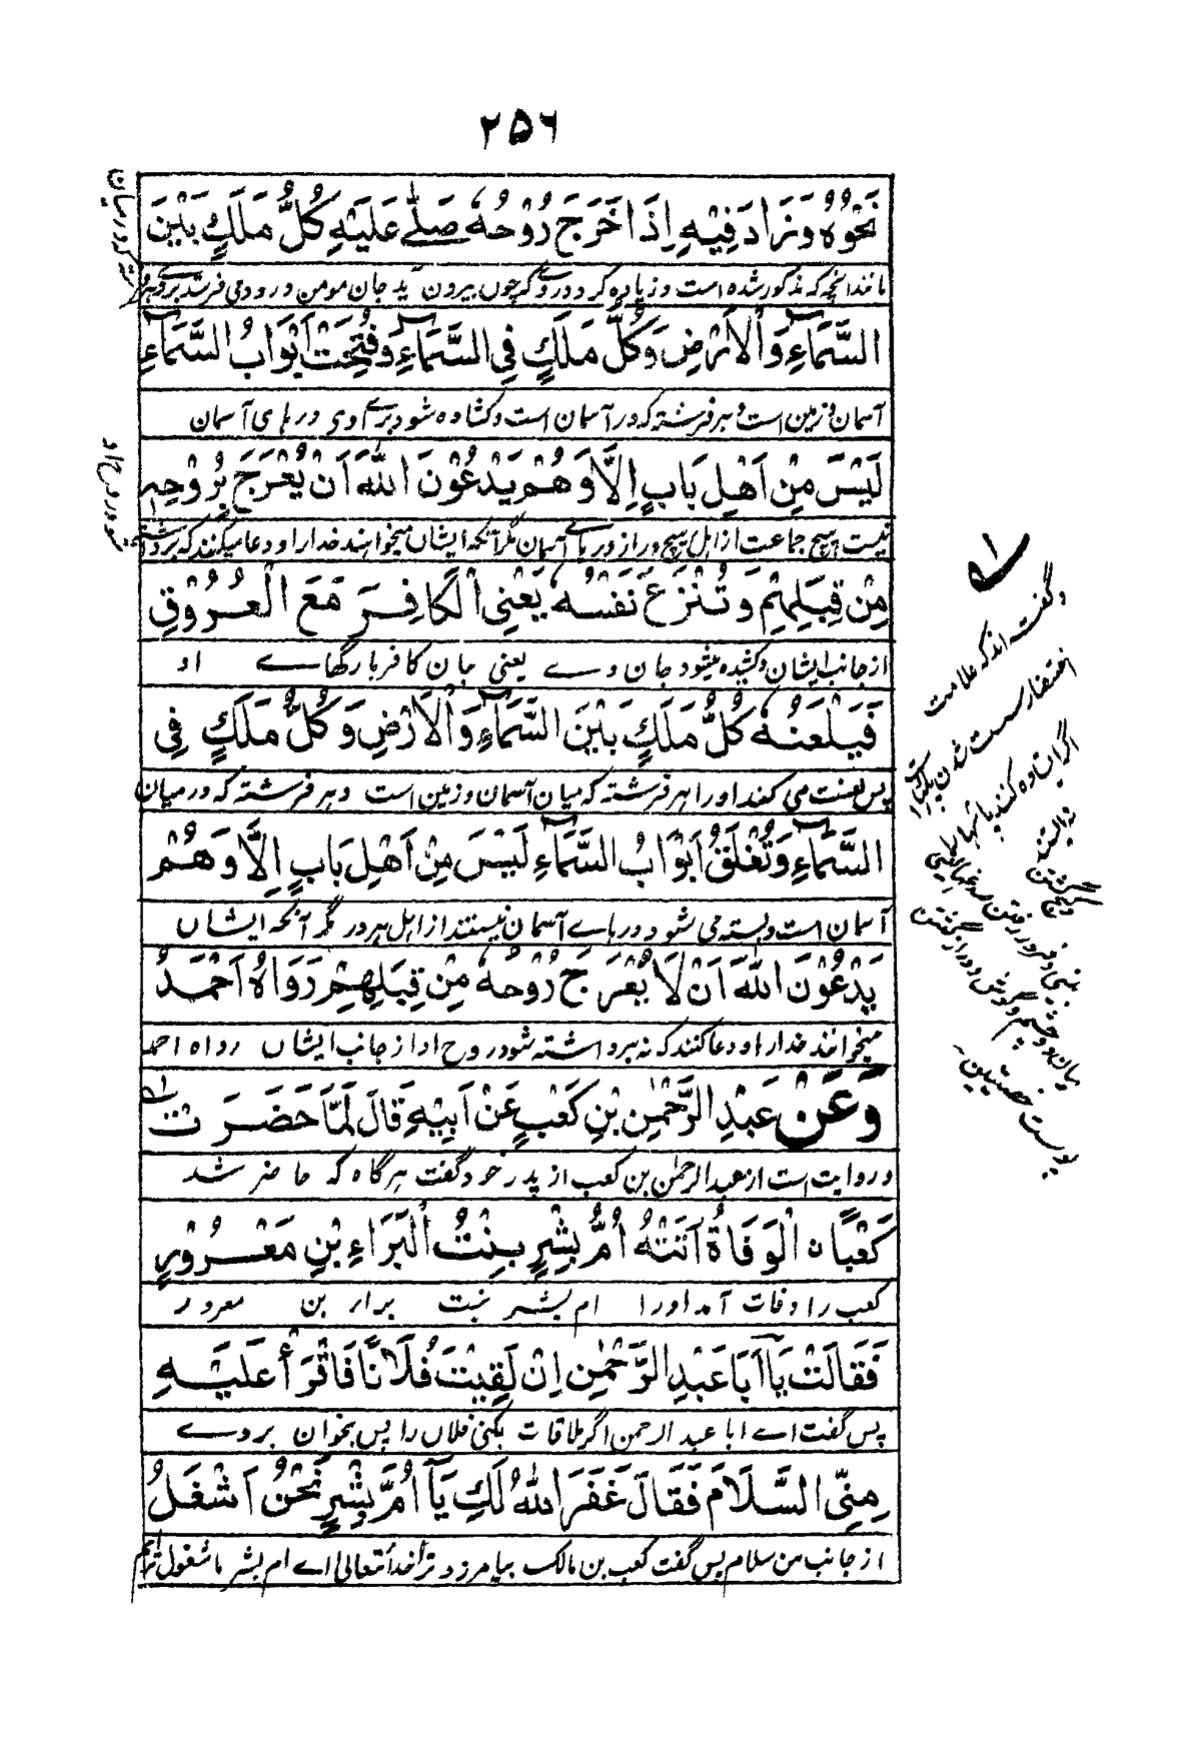 ۲۵۶
نَحْوَهُ وَزَادَ فِيْهِ اِذَا خَرَجَ رُوْحُهٗ صَلّٰے عَلَيْهِ كُلُّ مَلَكٍ بَيْنَ
مانند انچه که مذکور شده است و زیاده کرد دروے که چون بیرون آید جان مومن درود می فرستد بروے هر
فرشته که در میان
السَّمَآءِ وَالْاَرْضِ وَكُلُّ مَلَكٍ فِي السَّمَآءِ وَفُتِحَتْ اَبْوَابُ السَّمَآءِ
آسمان و زمین است و هر فرشته که در آسمان است و کشاده شود برے وی درهای آسمان
لَيْسَ مِنْ اَهْلِ بَابٍ اِلَّا وَهُمْ يَدْعُوْنَ اللّٰهَ اَنْ يُّعْرَجَ بِرُوْحِهٖ
نیست هیچ جماعت از اهل هیچ در از درهاے آسمان مگر آنکه ایشان میخوانند خدا را و دعا میکنند که برداشته
شود روح او
مِنْ قِبَلِهِمْ وَتُنْزَعُ نَفْسُهٗ يَعْنِي الْكَافِرَ مَعَ الْعُرُوْقِ
از جانب ایشان و کشیده میشود جان وے یعنی جان کافر با رگهاے او
فَيَلْعَنُهٗ كُلُّ مَلَكٍ بَيْنَ السَّمَآءِ وَالْاَرْضِ وَكُلُّ مَلَكٍ فِي
پس لعنت می کند او را هر فرشته که میان آسمان و زمین است و هر فرشته که در میان
السَّمَآءِ وَتُغْلَقُ اَبْوَابُ السَّمَآءِ لَيْسَ مِنْ اَهْلِ بَابٍ اِلَّا وَهُمْ
آسمان است و بسته می شود درهاے آسمان نیستند از اهل هر در مگر آنکه ایشاں
يَدْعُوْنَ اللّٰهَ اَنْ لَّا يُعْرَجَ رُوْحُهٗ مِنْ قِبَلِهِمْ رَوَاهُ اَحْمَدُ
میخوانند خدا را و دعا کنند که نه برداشته شود روح او از جانب ایشاں رواه احمد
وَعَنْ عَبْدِ الرَّحْمٰنِ بْنِ كَعْبٍ عَنْ اَبِيْهِ قَالَ لَمَّا حَضَرَتْ
و روایت است از عبد الرحمٰن بن کعب از پدر خود گفت هرگاه که حاضر شد
كَعْبًا نِ الْوَفَاةُ اَتَتْهُ اُمُّ بِشْرٍ بِنْتُ الْبَرَاءِ بْنِ مَعْرُوْرٍ
کعب را وفات آمد او را ام بشر بنت براء بن معرور
فَقَالَتْ يَآ اَبَا عَبْدِ الرَّحْمٰنِ اِنْ لَقِيْتَ فُلَانًا فَاقْرَأْ عَلَيْهِ
پس گفت اے ابا عبد الرحمن اگر ملاقات بکنی فلاں را پس بخوان بروے
مِنِّي السَّلَامَ فَقَالَ غَفَرَ اللّٰهُ لَكِ يَآ اُمَّ بِشْرٍ نَحْنُ اَشْغَلُ
از جانب من سلام پس گفت کعب بن مالک بیامرزد ترا خدا تعالی اے ام بشر ما مشغول تر ایم
و گفته اند که علامت
احتضار سست شدن